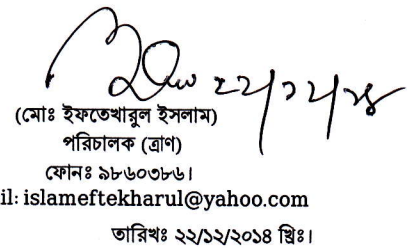 ২২/১২/১৪
(মোঃ ইফতেখারুল ইসলাম)
পরিচালক (ত্রাণ)
ফোনঃ ৯৮৬০৩৮৬।
il: islameftekharul@yahoo.com
তারিখঃ ২২/১২/২০১৪ খ্রিঃ।